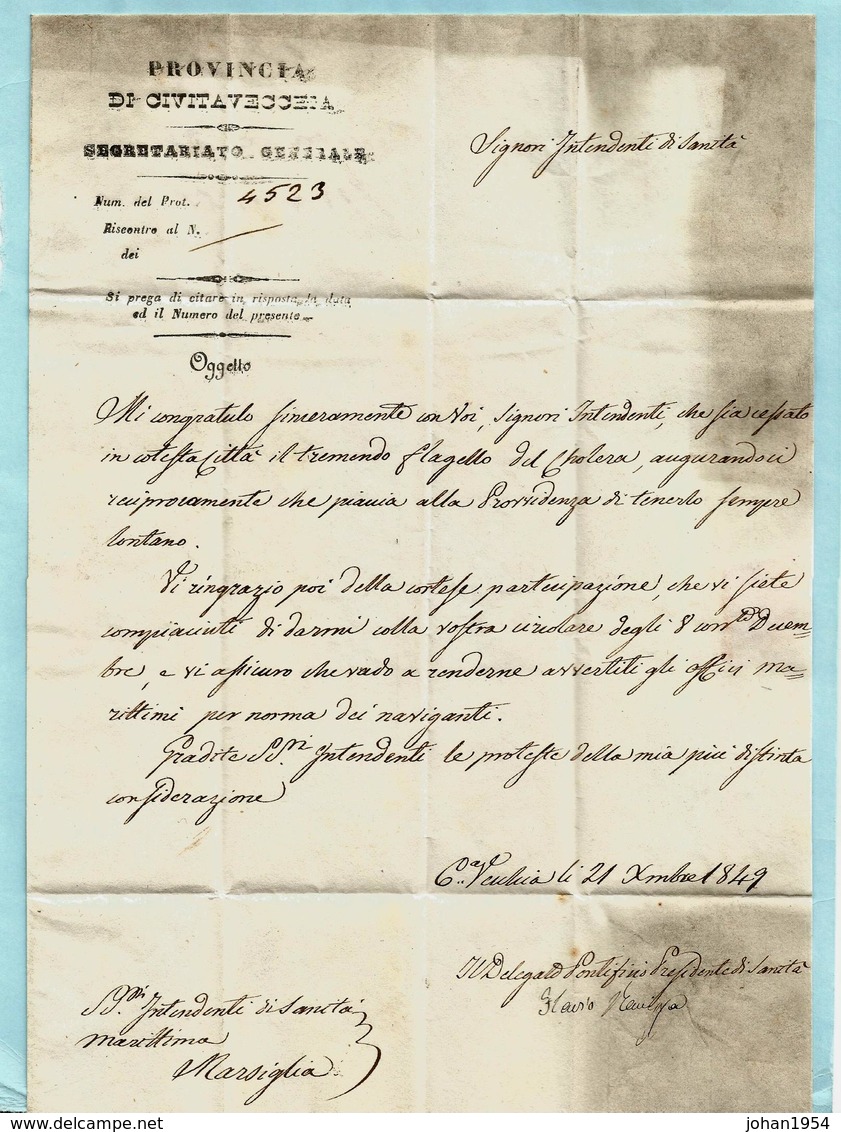 PROVINCIA
DI CIVITAVECCHIA
SEGRETARIATO GENERALE
Num. del Prot. 4523
Riscontro al N.
dei
Si prega di citare in risposta la data
ed il Numero del presente
Oggetto
Signori Intendenti di Sanità
Mi congratulo sinceramente con Voi, Signori Intendenti, che sia cessato
in cotesta Città il tremendo flagello del Cholera, augurandoci
reciprocamente che piaccia alla Provvidenza di tenerlo sempre
lontano.
Vi ringrazio poi della cortese partecipazione, che vi siete
compiaciuti di darmi colla vostra circolare degli 8 corr.te Dicem=
bre, e vi assicuro che vado a renderne avvertiti gli officj ma=
rittimi per norma dei naviganti.
Gradite SS.ri Intendenti le proteste della mia più distinta
considerazione
C.a Vecchia li 21 Xmbre 1849
Il Delegato Pontificio Presidente di Sanità
SS.ri Intendenti di Sanità
marittima
Marsiglia
delcampe.net
johan1954